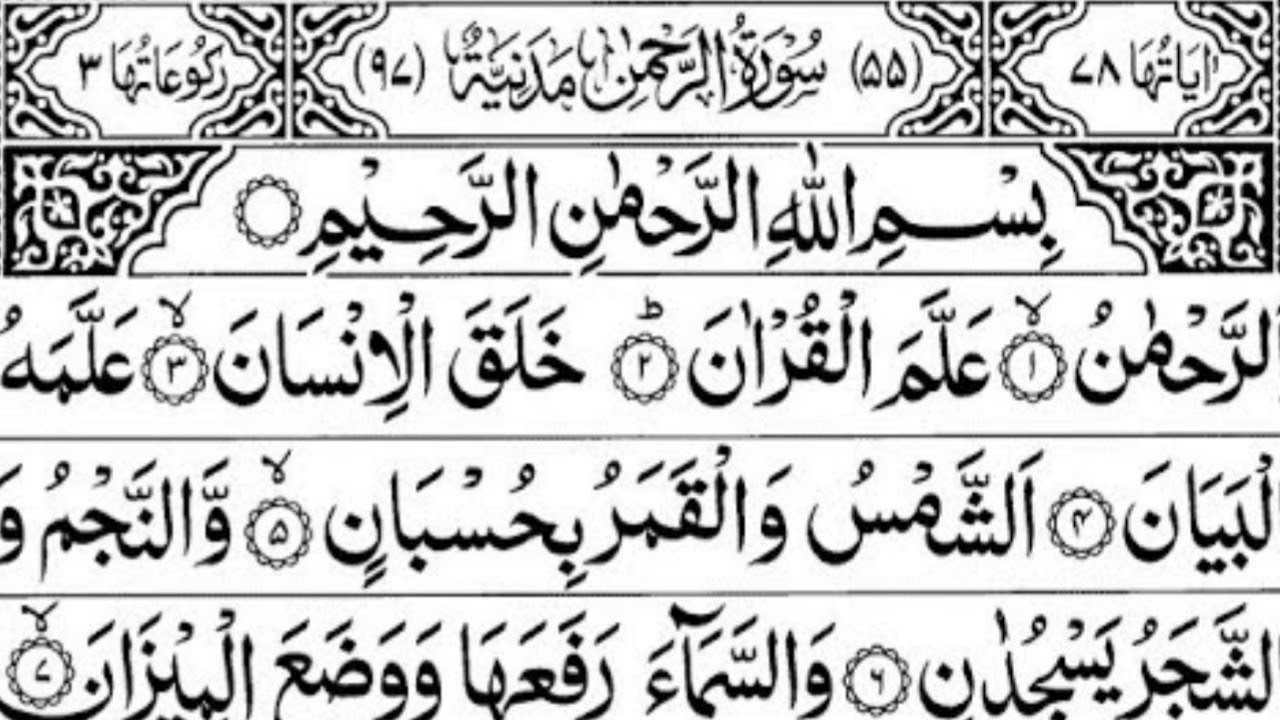 اٰيَاتُهَا ٧٨ (۵۵) سُوْرَةُ الرَّحْمٰنِ مَدَنِيَّةٌ (٩٧) رُكُوْعَاتُهَا ٣
بِسْمِ اللّٰهِ الرَّحْمٰنِ الرَّحِيْمِ
لرَّحْمٰنُ ١ۙ عَلَّمَ الْقُرْاٰنَ ٢ؕ خَلَقَ الْاِنْسَانَ ٣ۙ عَلَّمَهُ
لْبَيَانَ ۴ اَلشَّمْسُ وَالْقَمَرُ بِحُسْبَانٍ ۵ۙ وَّالنَّجْمُ وَ
لشَّجَرُ يَسْجُدٰنِ ۶ وَالسَّمَآءَ رَفَعَهَا وَوَضَعَ الْمِيْزَانَ ۷ۙ